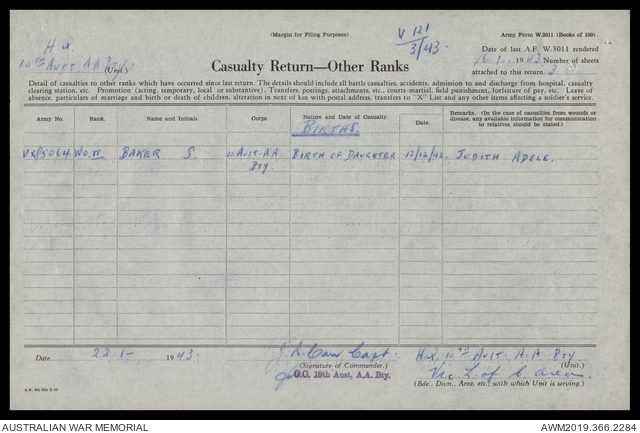 (Margin for Filing Purposes)
V 121
3/43.
Army Form W.3011 (Books of 100).
H.Q.
10TH AUST. A A Bty.
(Unit.)
Casualty Return—Other Ranks
Date of last A.F. W.3011 rendered
1943 Number of sheets
attached to this return. 3
Detail of casualties to other ranks which have occurred since last return. The details should include all battle casualties, accidents, admission to and discharge from hospital, casualty
clearing station, etc. Promotion (acting, temporary, local or substantive). Transfers, postings, attachments, etc., courts-martial, field punishment, forfeiture of pay, etc. Leave of
absence, particulars of marriage and birth or death of children, alteration in next of kin with postal address, transfers to "X" List and any other items affecting a soldier's service.
Army No.
Rank.
Name and Initials.
Corps.
Nature and Date of Casualty.
BIRTHS.
Date.
Remarks. (In the case of casualties from wounds or
disease, any available information for communication
to relatives should be stated.)
VX85064 WO.II BAKER S. 10 AUST. A.A. BIRTH OF DAUGHTER 12/12/42. JUDITH ADELE.
BTY.
Date 22 - 1 - 1943.
Capt.
(Signature of Commander.)
O.C. 10th Aust. A.A. Bty.
H.Q. 10TH AUST. A.A. BTY
(Unit.)
Vic L. of C. Area.
(Bde., Divn., Area, etc., with which Unit is serving.)
AUSTRALIAN WAR MEMORIAL
AWM2019.366.2284